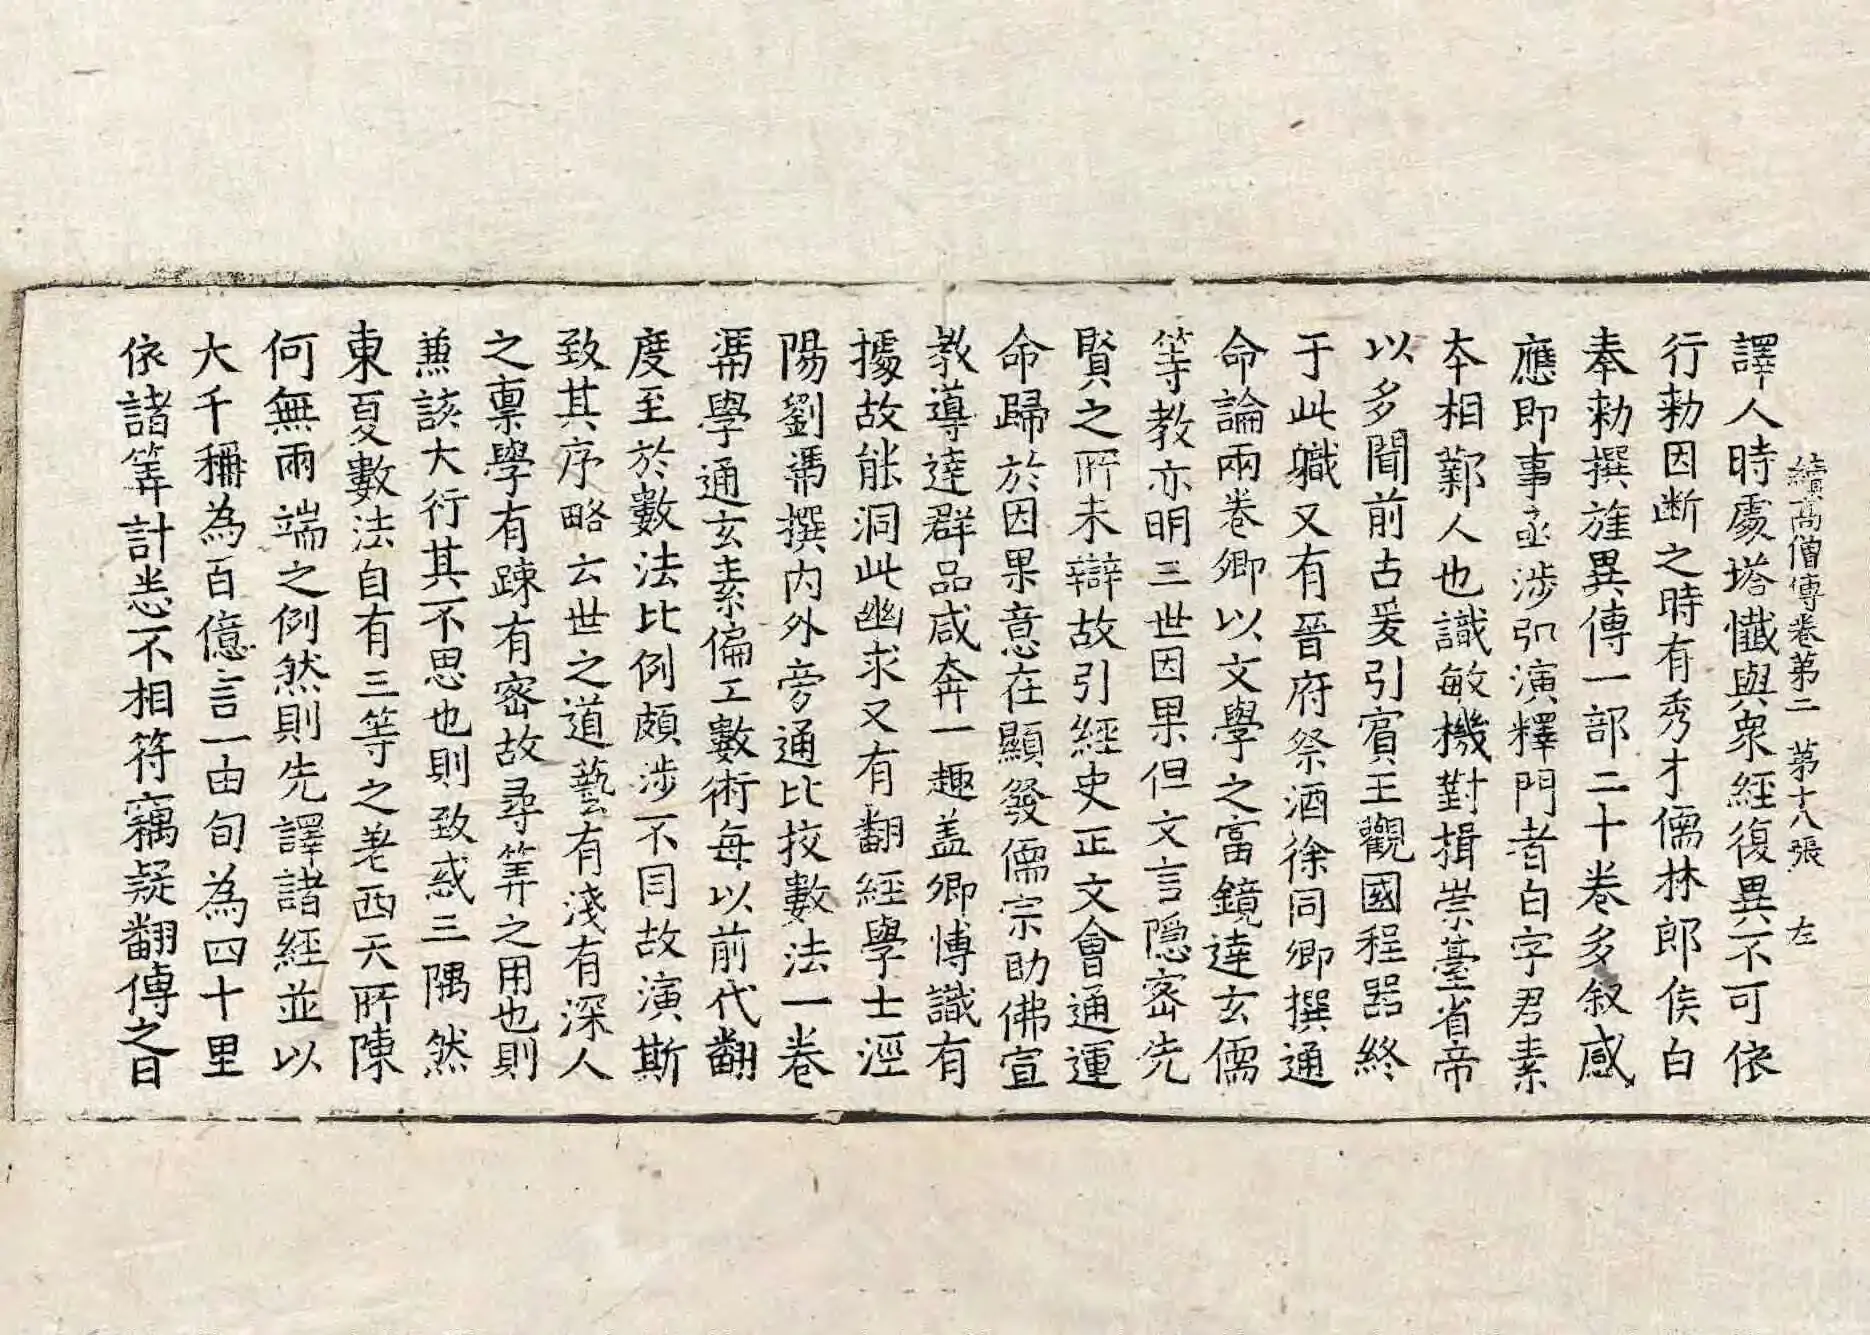 續高僧傳卷第二 第十八張 左
譯人時處塔懺與衆經復異不可依
行勑因断之時有秀才儒林郎侯白
奉勑撰旌異傳一部二十卷多叙感
應即事亟涉弘演釋門者白字君素
本相鄴人也識敏機對揖崇臺省帝
以多聞前古爰引賓王觀國程器終
于此職又有晉府祭酒徐同卿撰通
命論兩卷卿以文學之富鏡達玄儒
等教亦明三世因果但文言隱密先
賢之所未辯故引經史正文會通運
命歸於因果意在顯發儒宗助佛宣
教導達群品咸奔一趣盖卿愽識有
據故能洞此幽求又有翻經學士涇
陽劉馮撰内外旁通比挍數法一卷
馮學通玄素偏工數術每以前代翻
度至於數法比例頗涉不同故演斯
致其序略云世之道藝有淺有深人
之禀學有踈有密故尋筭之用也則
兼該大行其不思也則致惑三隅然
東夏數法自有三等之差西天所陳
何無兩端之例然則先譯諸經並以
大千稱為百億言一由旬為四十里
依諸筭計悉不相符竊疑翻傳之日